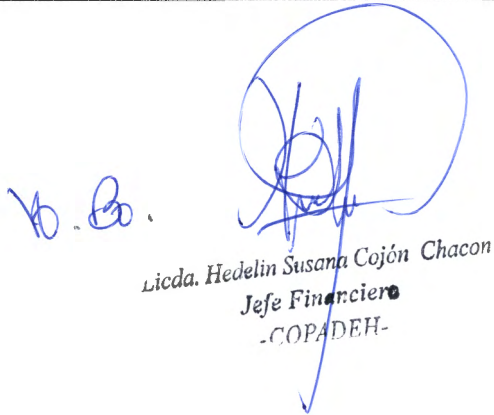 Vo. Bo.
Licda. Hedelin Susana Cojón Chacon
Jefe Financiero
-COPADEH-